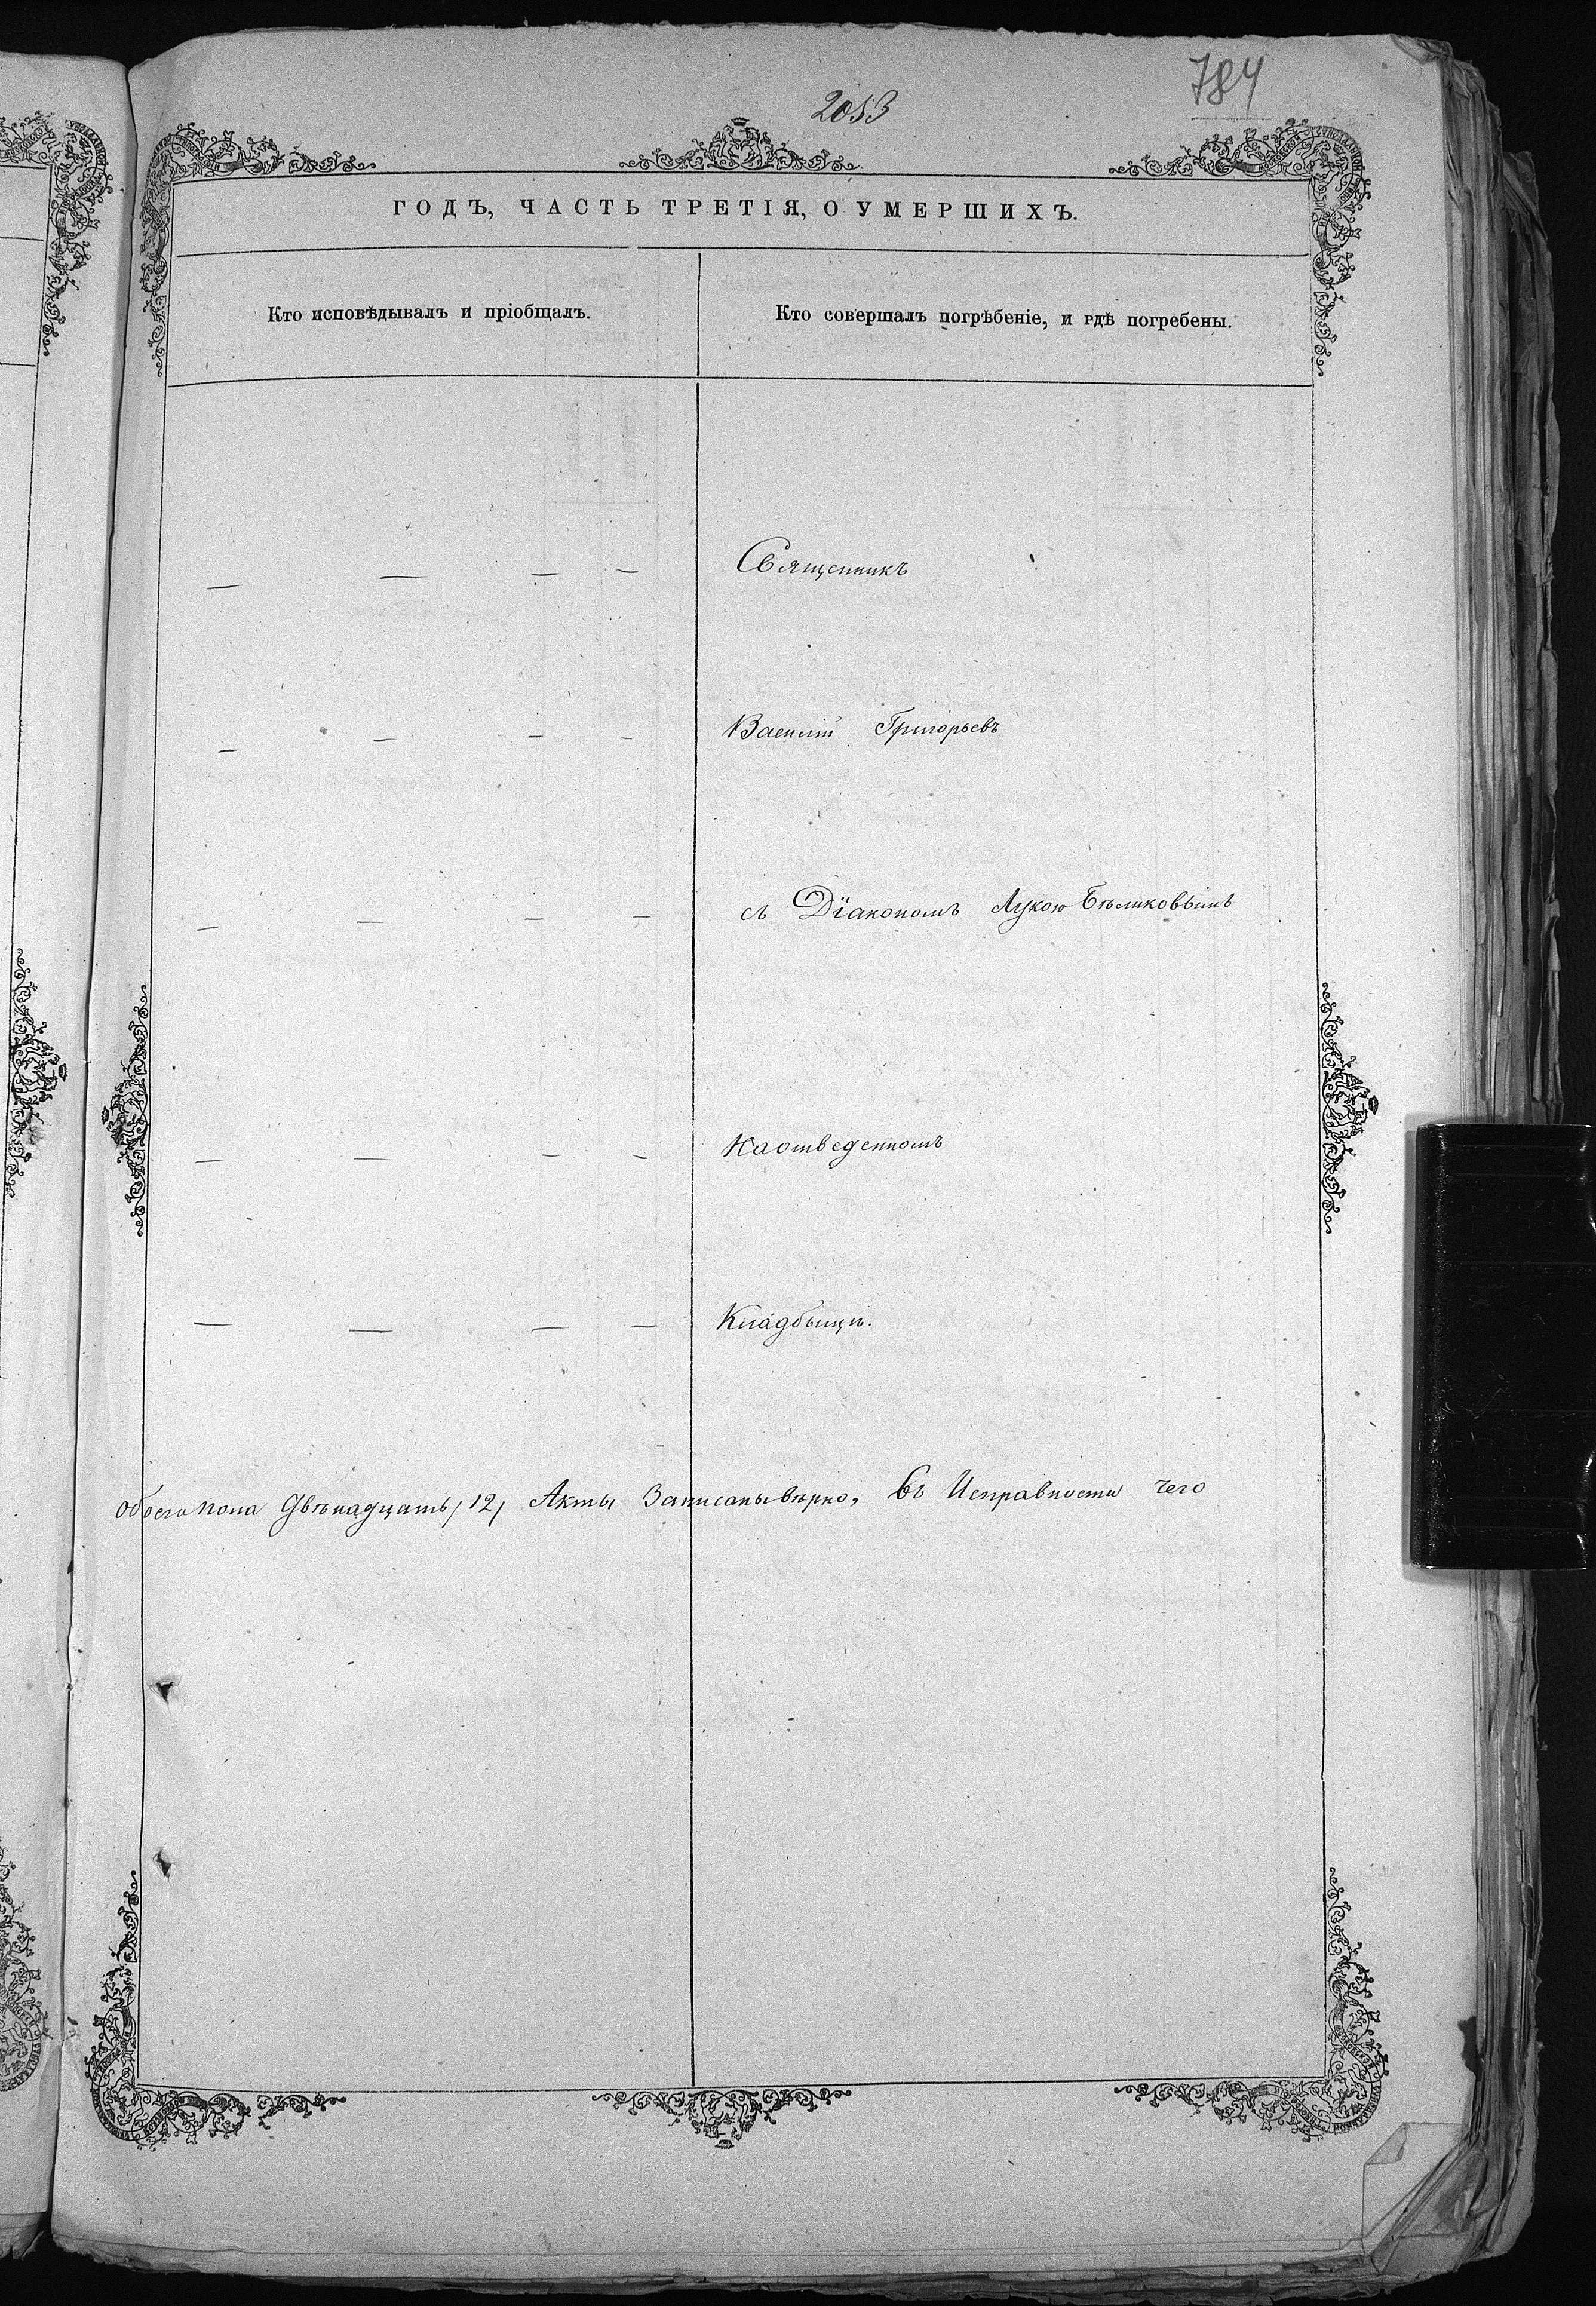 784
2053
ГОДЪ, ЧАСТЬ ТРЕТІЯ, О УМЕРШИХЪ.
Кто исповѣдывалъ и пріобщалъ.
Кто совершалъ погрѣбеніе, и гдѣ погребены.
— — — — Священникъ
— — — — Василій Григорьевъ
— — — — съ Діакономъ Лукою Бѣликовымъ
— — — — На отведенномъ
— — — — Кладбыщѣ.
обоего пола двѣнадцать /12/ Акты Записаны вѣрно, Въ Исправности чего